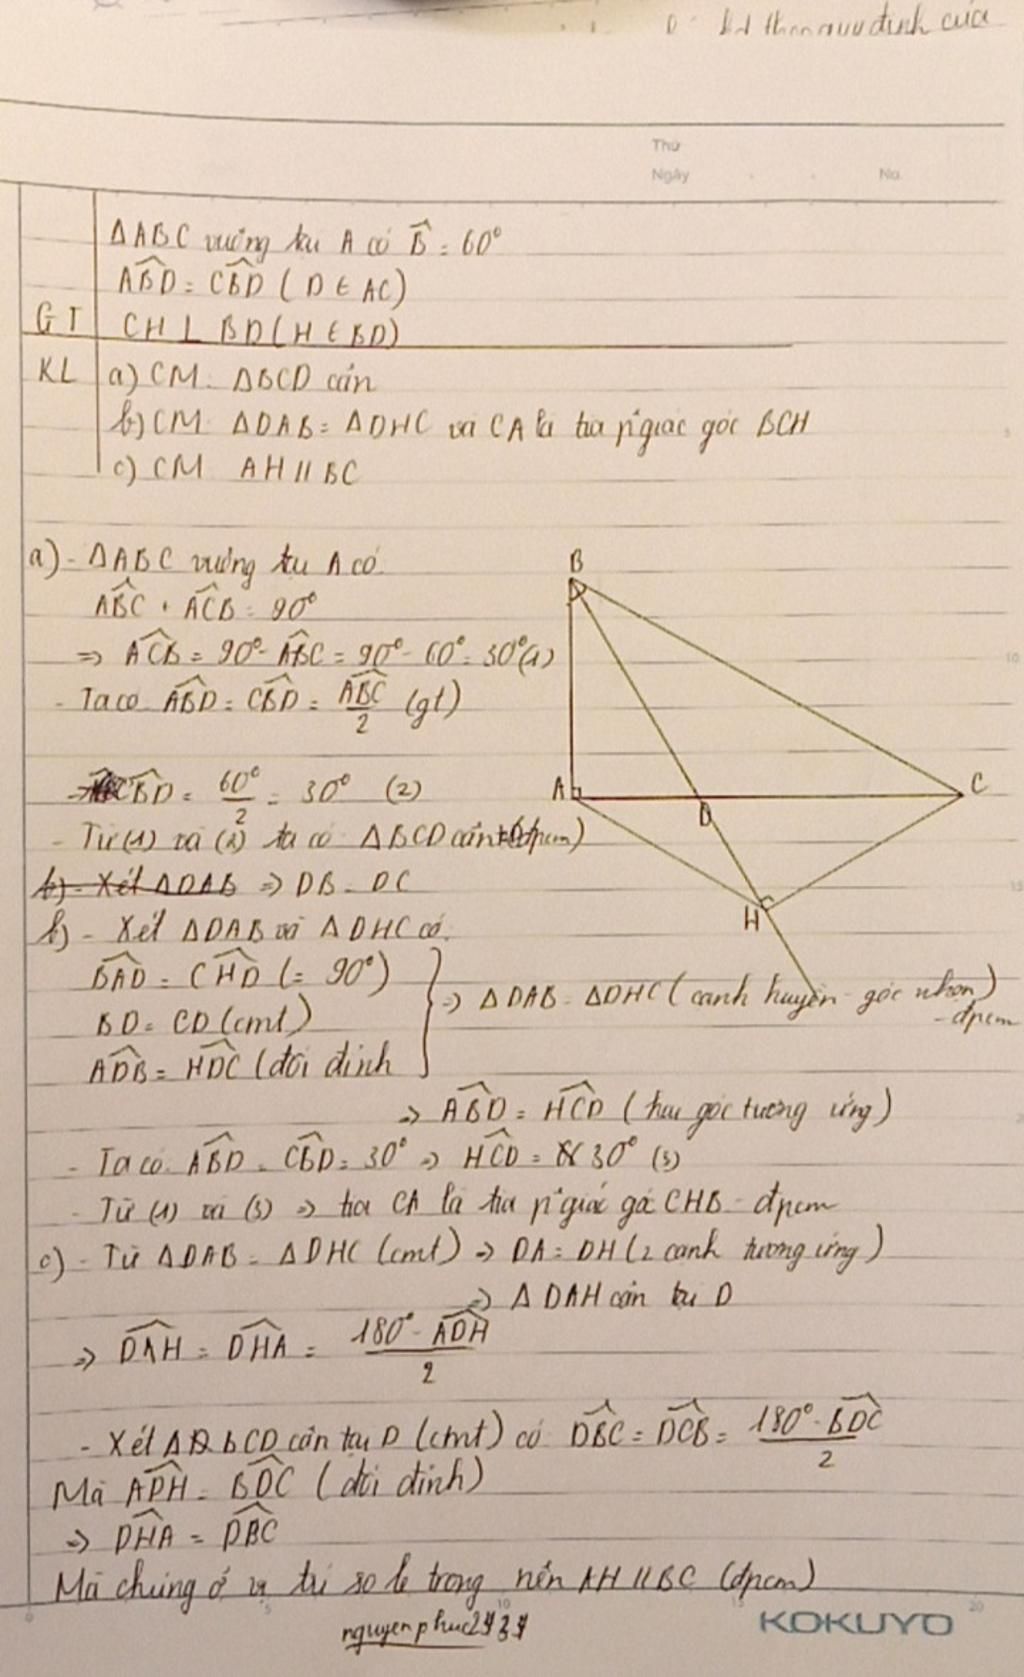 theo quy định của
Thứ
Ngày No.
ΔABC vuông tại A có B̂ = 60°
ABD̂ = CBD̂ (D ∈ AC)
GT CH ⊥ BD (H ∈ BD)
KL a) CM: ΔBCD cân
b) CM ΔDAB = ΔDHC và CA là tia p'giác góc BCH
c) CM AH // BC
a) - ΔABC vuông tại A có
ABĈ + ACB̂ = 90°
=> ACB̂ = 90° - ABĈ = 90° - 60° = 30° (1)
- Ta có ABD̂ = CBD̂ = ABĈ/2 (gt)
=> CBD̂ = 60°/2 = 30° (2)
- Từ (1) và (2) ta có ΔBCD cân (đpcm)
b) - Xét ΔDAB => DB = DC
b) - Xét ΔDAB và ΔDHC có
BAD̂ = CHD̂ (= 90°)
BD = CD (cmt)
ADB̂ = HDĈ (đối đỉnh
=> ΔDAB = ΔDHC (cạnh huyền - góc nhọn)
- đpcm
=> ABD̂ = HCD̂ (hai góc tương ứng)
- Ta có ABD̂ = CBD̂ = 30° => HCD̂ = 30° (3)
- Từ (1) và (3) => tia CA là tia p'giác góc CHB - đpcm
c) - Từ ΔDAB = ΔDHC (cmt) => DA = DH (2 cạnh tương ứng)
=> ΔDAH cân tại D
=> DAĤ = DHÂ = 180° - ADĤ/2
- Xét ΔBCD cân tại D (cmt) có DBĈ = DCB̂ = 180° - BDĈ/2
Mà ADĤ = BDĈ (đối đỉnh)
=> DHÂ = DBĈ
Mà chúng ở vị trí so le trong nên AH // BC (đpcm)
B
A
D
C
H
nguyenphuc2
KOKUYO